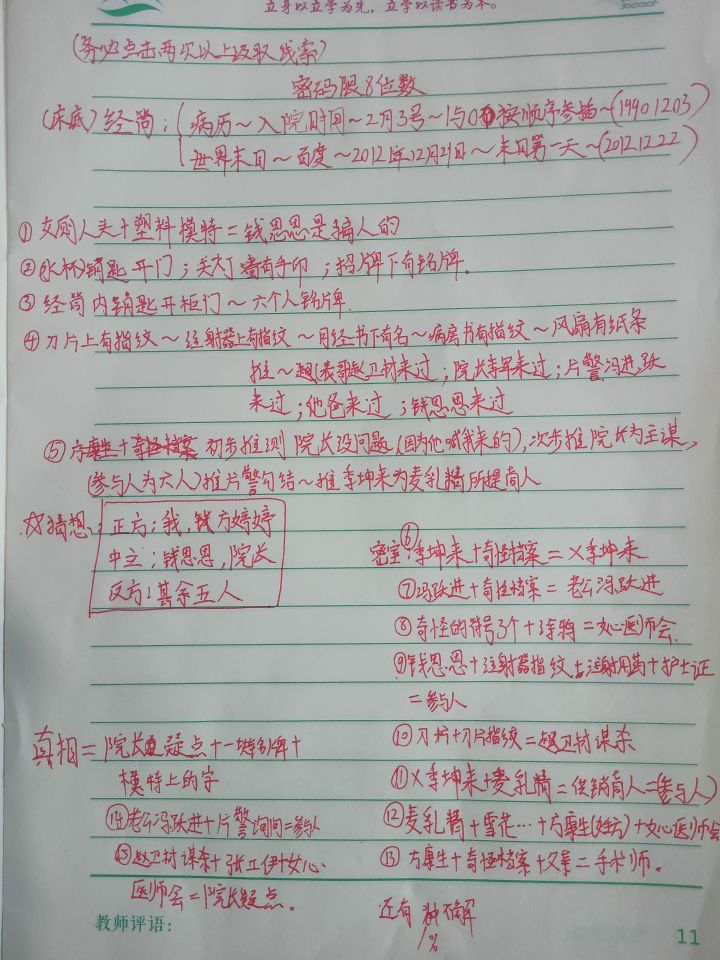 立身以立学为先，立学以读书为本。
(务必点击两次以上级取线索)
密码限8位数
(床底)经筒：(病历～入院时间～2月3号～1与0按顺序参插～(19901203)
世界末日～百度～2012年12月21日～末日第一天～(20121222)
①女厕人头+塑料模特=钱思思是骗人的
②(水杯)钥匙开门；关灯墙有手印；招牌下有铭牌.
③经筒内钥匙开柜门～六个人铭牌.
④刀片上有指纹～注射器上有指纹～月经书下有名～病房书有指纹～风扇有纸条
推～赵(表哥赵卫材来过；院长李军来过；片警冯进跃
来过；他爸来过；钱思思来过
⑤方廉生+奇怪档案 初步推测院长没问题(因为他喊我来的),次步推院长为主谋,
(参与人为六人)推片警勾结～推李坤来为麦乳精所提高人
☆猜想：正方：我,钱方婷婷
中立：钱思思,院长
反方：其余五人
密室：⑥李坤来+奇怪档案=X李坤来
⑦冯跃进+奇怪档案=老公冯跃进
⑧奇怪的符号3个+涂鸦=女心医师会.
⑨钱思思+注射器指纹+注射用药+护士证
=参与人
真相=院长疑点+一块铭牌+
模特上的字
⑩刀片+刀片指纹=赵卫材谋杀
⑪X李坤来+麦乳精=促销商人=(参与人)
⑭老公冯跃进+片警询问=参与人
⑫麦乳精+雪花…+方廉生(姓方)+女心医师会
⑮赵卫材谋杀+张工伊+女心
⑬方廉生+奇怪档案+父亲=手术师。
医师会=院长疑点。
还有 种不解
1%
教师评语：
11